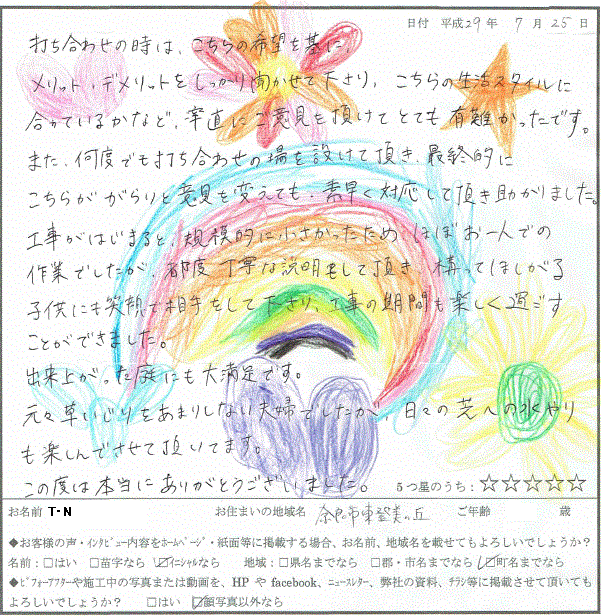 日付 平成29年 7月25日
打ち合わせの時は、こちらの希望を基に、
メリット・デメリットをしっかり聞かせて下さり、こちらの生活スタイルに
合っているかなど、率直にご意見を頂けてとても有難かったです。
また、何度でも打ち合わせの場を設けて頂き、最終的に
こちらががらりと意見を変えても、素早く対応して頂き助かりました。
工事がはじまると、規模的に小さかったため、ほぼお一人での
作業でしたが、都度丁寧な説明もして頂き、構ってほしがる
子供にも笑顔で相手をして下さり、工事の期間も楽しく過ごす
ことができました。
出来上がった庭にも大満足です。
元々草いじりをあまりしない夫婦でしたが、日々の芝への水やり
も楽しんでさせて頂いてます。
この度は本当にありがとうございました。 5つ星のうち：☆☆☆☆☆
お名前 T・N お住まいの地域名 奈良市東登美ヶ丘 ご年齢 歳
◆お客様の声・インタビュー内容をホームページ・紙面等に掲載する場合、お名前、地域名を載せてもよろしいでしょうか？
名前：□はい □苗字なら ☑イニシャルなら 地域：□県名までなら □郡・市名までなら ☑町名までなら
◆ビフォーアフターや施工中の写真または動画を、HP や facebook、ニュースレター、弊社の資料、チラシ等に掲載させて頂いても
よろしいでしょうか？ □はい ☑顔写真以外なら